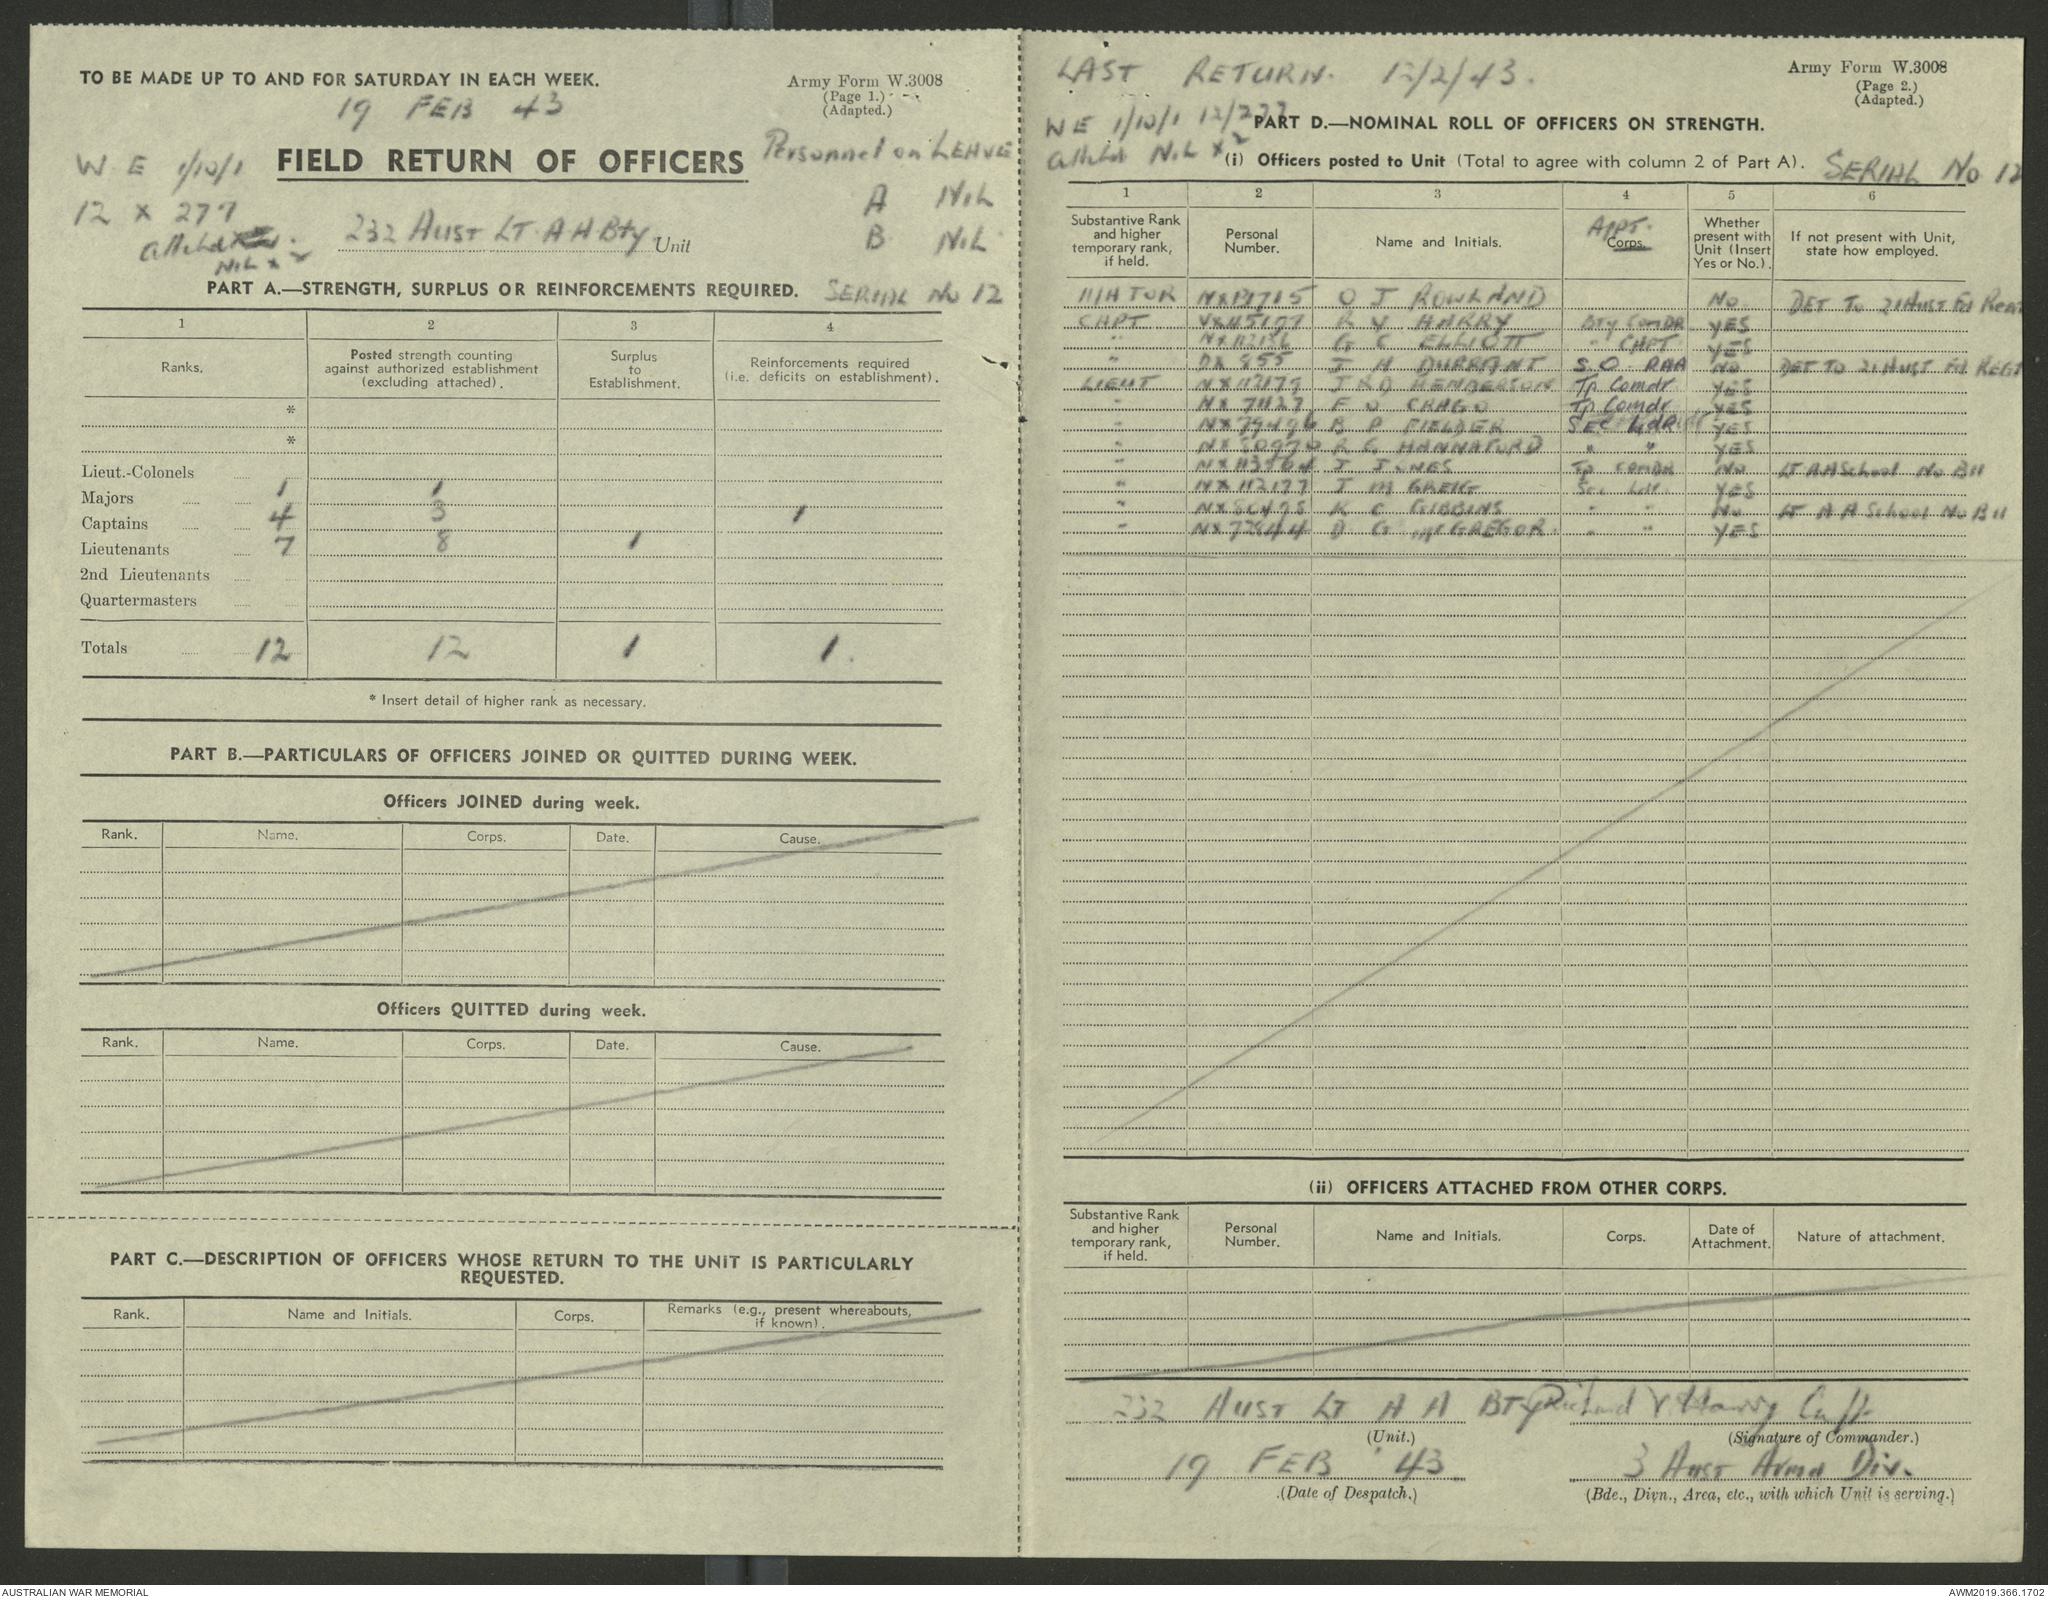 TO BE MADE UP TO AND FOR SATURDAY IN EACH WEEK.
19 FEB 43
Army Form W.3008
(Page 1.)
(Adapted.)
W E 1/10/1
FIELD RETURN OF OFFICERS
Personnel on LEAVE
12 x 277
A NIL
232 Aust LT. A A Bty Unit
B NIL
Nil x
PART A.—STRENGTH, SURPLUS OR REINFORCEMENTS REQUIRED. SERIAL No 12
1 2 3 4
Ranks.
Posted strength counting against authorized establishment (excluding attached).
Surplus to Establishment.
Reinforcements required (i.e. deficits on establishment).
*
*
Lieut.-Colonels
Majors 1 1
Captains 4 3 1
Lieutenants 7 8 1
2nd Lieutenants
Quartermasters
Totals 12 12 1 1.
* Insert detail of higher rank as necessary.
PART B.—PARTICULARS OF OFFICERS JOINED OR QUITTED DURING WEEK.
Officers JOINED during week.
Rank. Name. Corps. Date. Cause.
Officers QUITTED during week.
Rank. Name. Corps. Date. Cause.
PART C.—DESCRIPTION OF OFFICERS WHOSE RETURN TO THE UNIT IS PARTICULARLY
REQUESTED.
Rank. Name and Initials. Corps. Remarks (e.g., present whereabouts, if known).
LAST RETURN. 12/2/43.
Army Form W.3008
(Page 2.)
(Adapted.)
W E 1/10/1
PART D.—NOMINAL ROLL OF OFFICERS ON STRENGTH.
NIL x
(i) Officers posted to Unit (Total to agree with column 2 of Part A). SERIAL No 12
1 2 3 4 5 6
Substantive Rank and higher temporary rank, if held.
Personal Number.
Name and Initials.
APPT. Corps.
Whether present with Unit (Insert Yes or No.).
If not present with Unit, state how employed.
MAJOR O J ROWLAND NO DET TO 21 AUST Fd Regt
CAPT R V HARRY Bty ComDR YES
" G C ELLIOTT " CAPT YES
" DX 855 J H DURRANT S.O. RAA NO DET TO 21 AUST Fd REGT
LIEUT HENDERSON Tp Comdr YES
" F CRAGO Tp Comdr YES
" B P FIELDER SEC LdR YES
" HANNAFORD " " YES
" J JONES Tp COMDR NO LT AA School No B11
" NX112177 J M GREIG Sec Ldr YES
" K C GIBBINS " " NO LT A A School No B11
" D G McGREGOR " " YES
(ii) OFFICERS ATTACHED FROM OTHER CORPS.
Substantive Rank and higher temporary rank, if held.
Personal Number.
Name and Initials.
Corps.
Date of Attachment.
Nature of attachment.
232 AUST LT A A BTY Richard V Harry Capt.
(Unit.) (Signature of Commander.)
19 FEB '43 3 Aust Armd Div.
(Date of Despatch.) (Bde., Divn., Area, etc., with which Unit is serving.)
AUSTRALIAN WAR MEMORIAL
AWM2019.366.1702